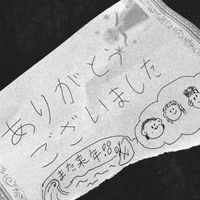 ありがとう
ございました
また来年